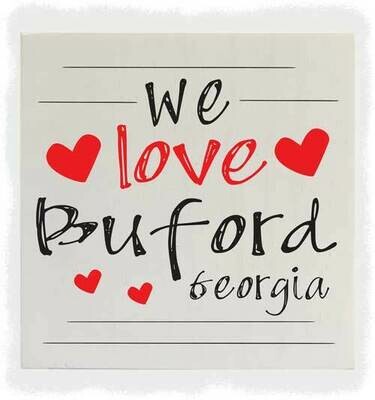 we
love
Buford
Georgia